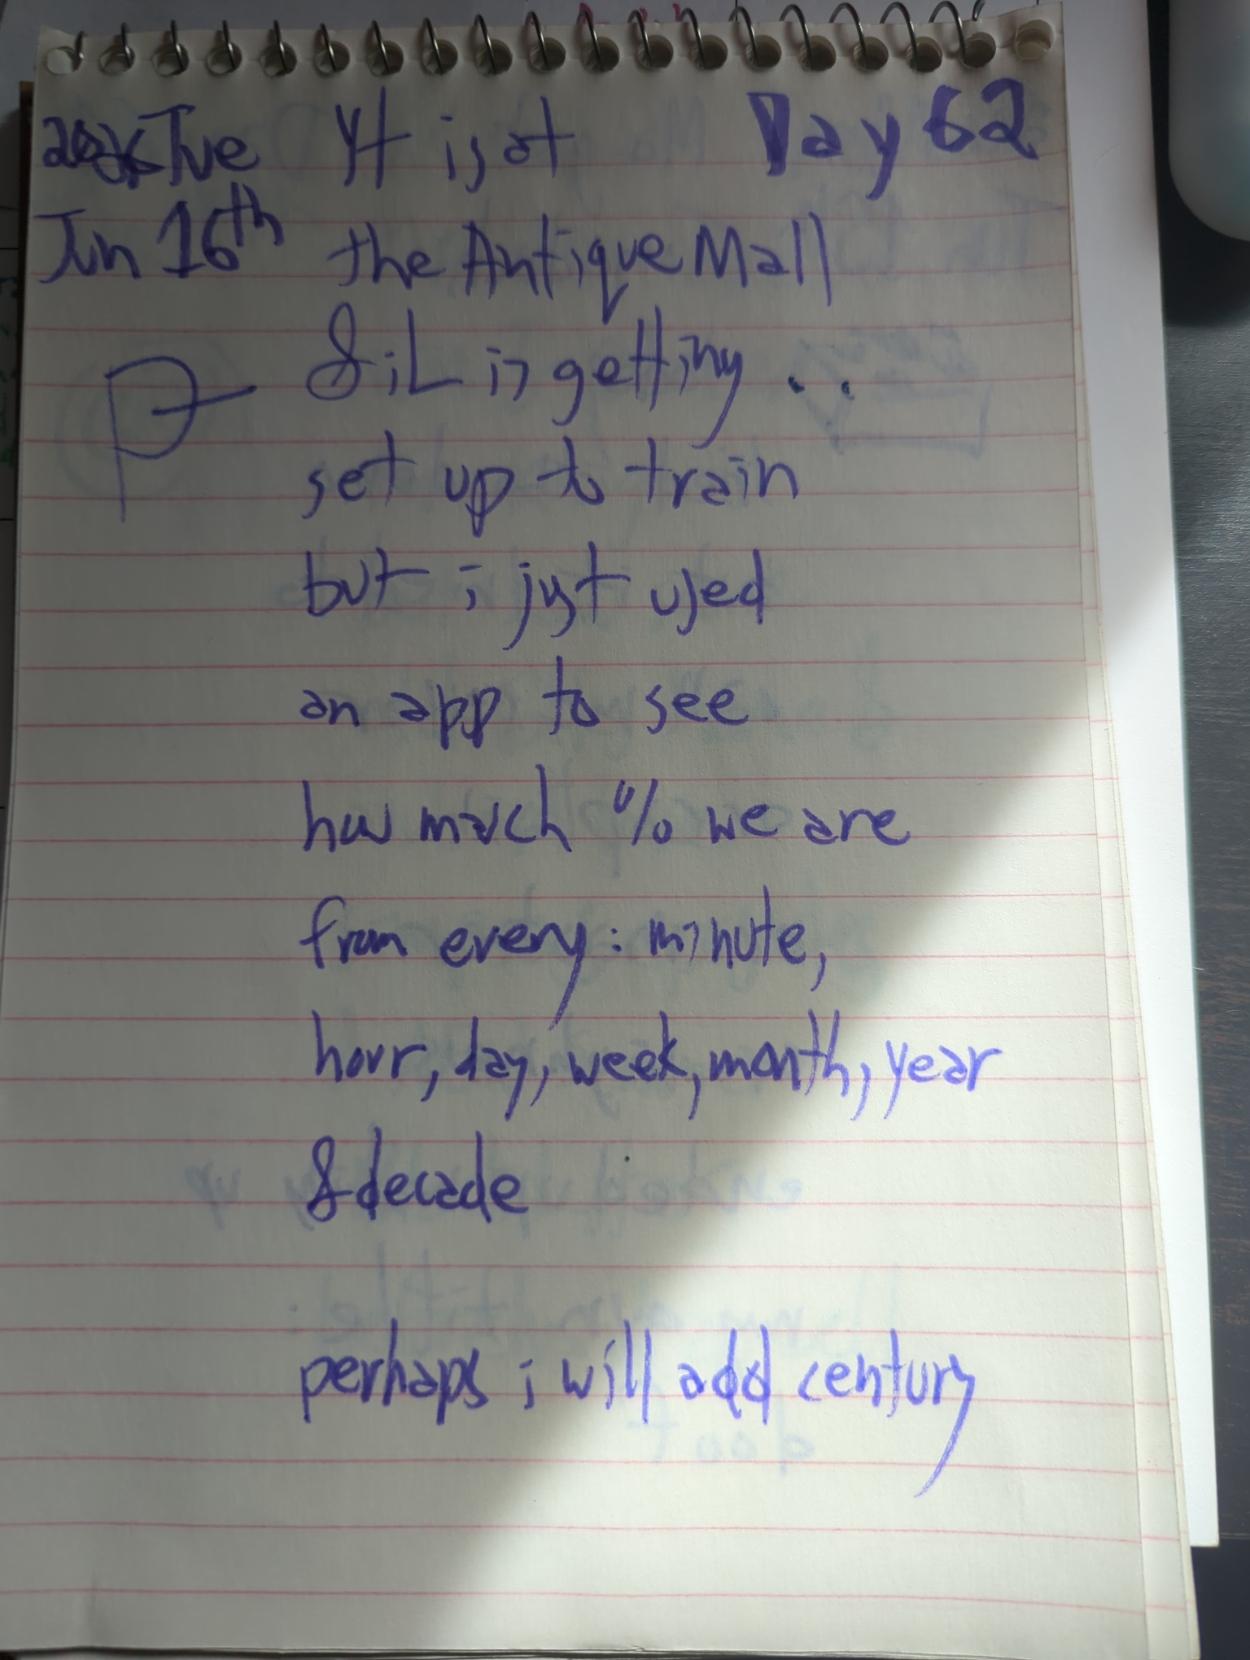 2026 Tue
Jun 16th
Day 62
Yt is at
the Antique Mall
& iL is getting ..
set up to train
but i just used
an app to see
how much % we are
from every: minute,
hour, day, week, month, year
& decade
perhaps i will add century